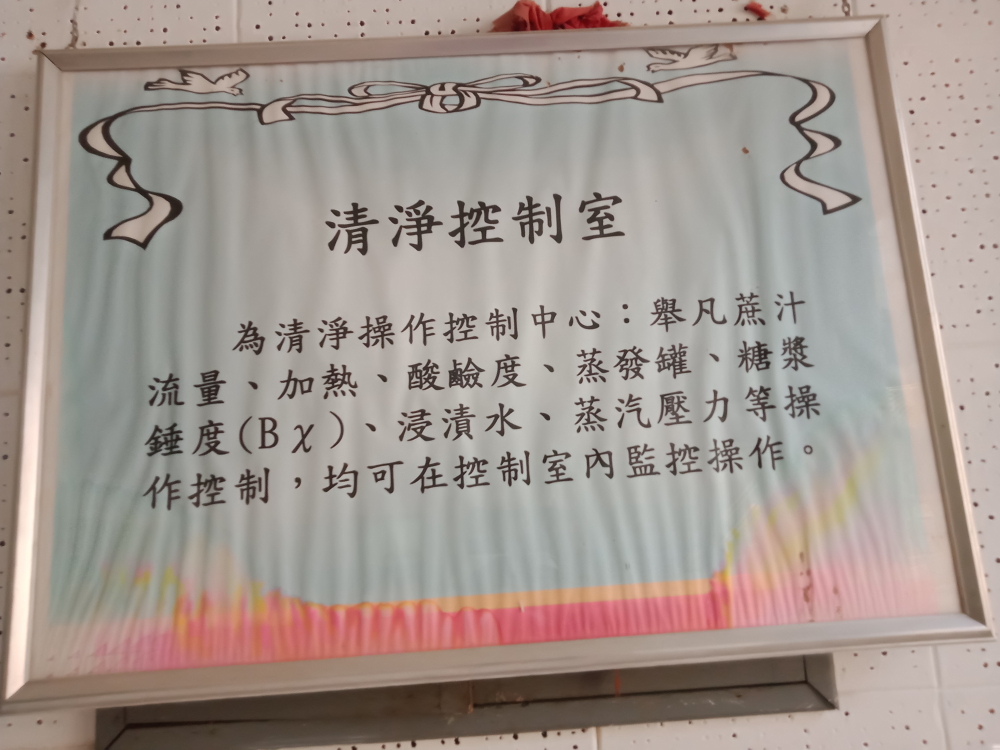 清淨控制室
為清淨操作控制中心：舉凡蔗汁
流量、加熱、酸鹼度、蒸發罐、糖漿
錘度(Bχ)、浸漬水、蒸汽壓力等操
作控制，均可在控制室內監控操作。